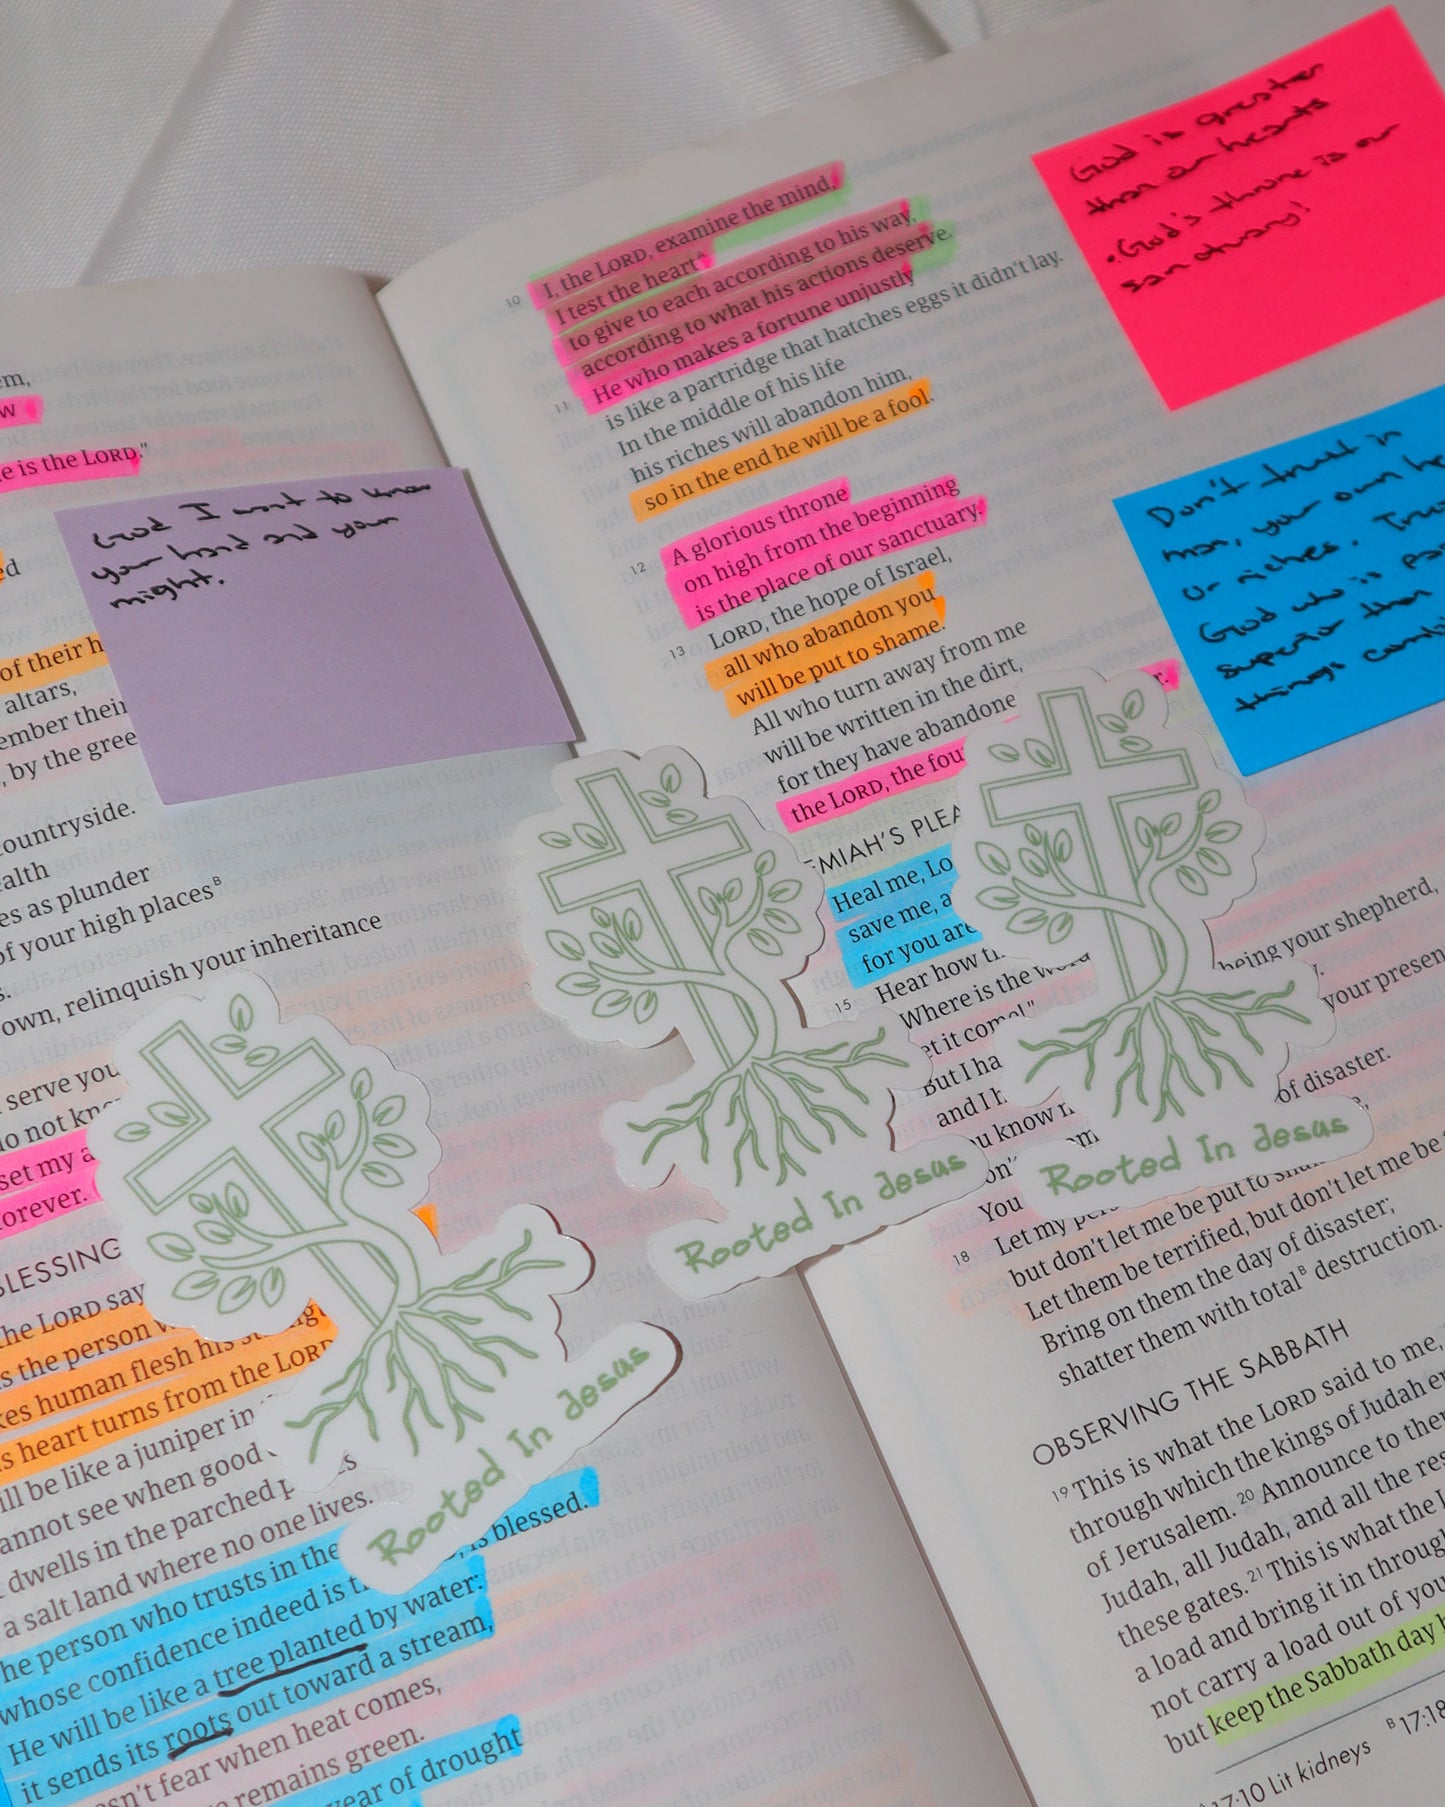 em,
w
e is the LORD."
ed
of their h
altars,
ember their
, by the gree
countryside.
ealth
es as plunder
of your high places B
s.
own, relinquish your inheritance
serve you
do not know
set my a
forever.
BLESSING
the LORD say
s the person
kes human flesh his strength
s heart turns from the LORD
ill be like a juniper in
annot see when good
dwells in the parched
a salt land where no one lives.
he person who trusts in the , is blessed.
whose confidence indeed is t
He will be like a tree planted by water:
it sends its roots out toward a stream,
esn't fear when heat comes,
remains green.
year of drought
God I want to know
your hand and your
might.
10 I, the LORD, examine the mind,
I test the heart A
to give to each according to his way,
according to what his actions deserve.
11 He who makes a fortune unjustly
is like a partridge that hatches eggs it didn't lay.
In the middle of his life
his riches will abandon him,
so in the end he will be a fool.
12 A glorious throne
on high from the beginning
is the place of our sanctuary.
13 LORD, the hope of Israel,
all who abandon you
will be put to shame.
All who turn away from me
will be written in the dirt,
for they have abandone
the LORD, the fou r.
EMIAH'S PLEA
Heal me, Lo
save me, a
for you are
Hear how th
15 Where is the word
et it come!"
But I ha being your shepherd,
and I h
u know your presen
on't of disaster.
You
18 Let my pers
but don't let me be put to sham
Let them be terrified, but don't let me be
Bring on them the day of disaster;
shatter them with total B destruction.
OBSERVING THE SABBATH
19 This is what the LORD said to me,
through which the kings of Judah en
of Jerusalem. 20 Announce to them
Judah, all Judah, and all the res
these gates. 21 This is what the L
a load and bring it in through
not carry a load out of you
but keep the Sabbath day h
A 17:10 Lit kidneys B 17:18
God is greater
than our hearts
. God's throne is our
sanctuary!
Don't trust in
man, your own he
or riches. Trus
God who is
superior than
things combi
Rooted In Jesus
Rooted In Jesus
Rooted In Jesus